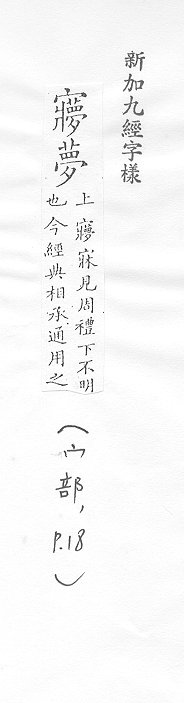 新加九經字樣
㝱夢
上㝱寐見周禮下不明
也今經典相承通用之
（宀部，P.18）